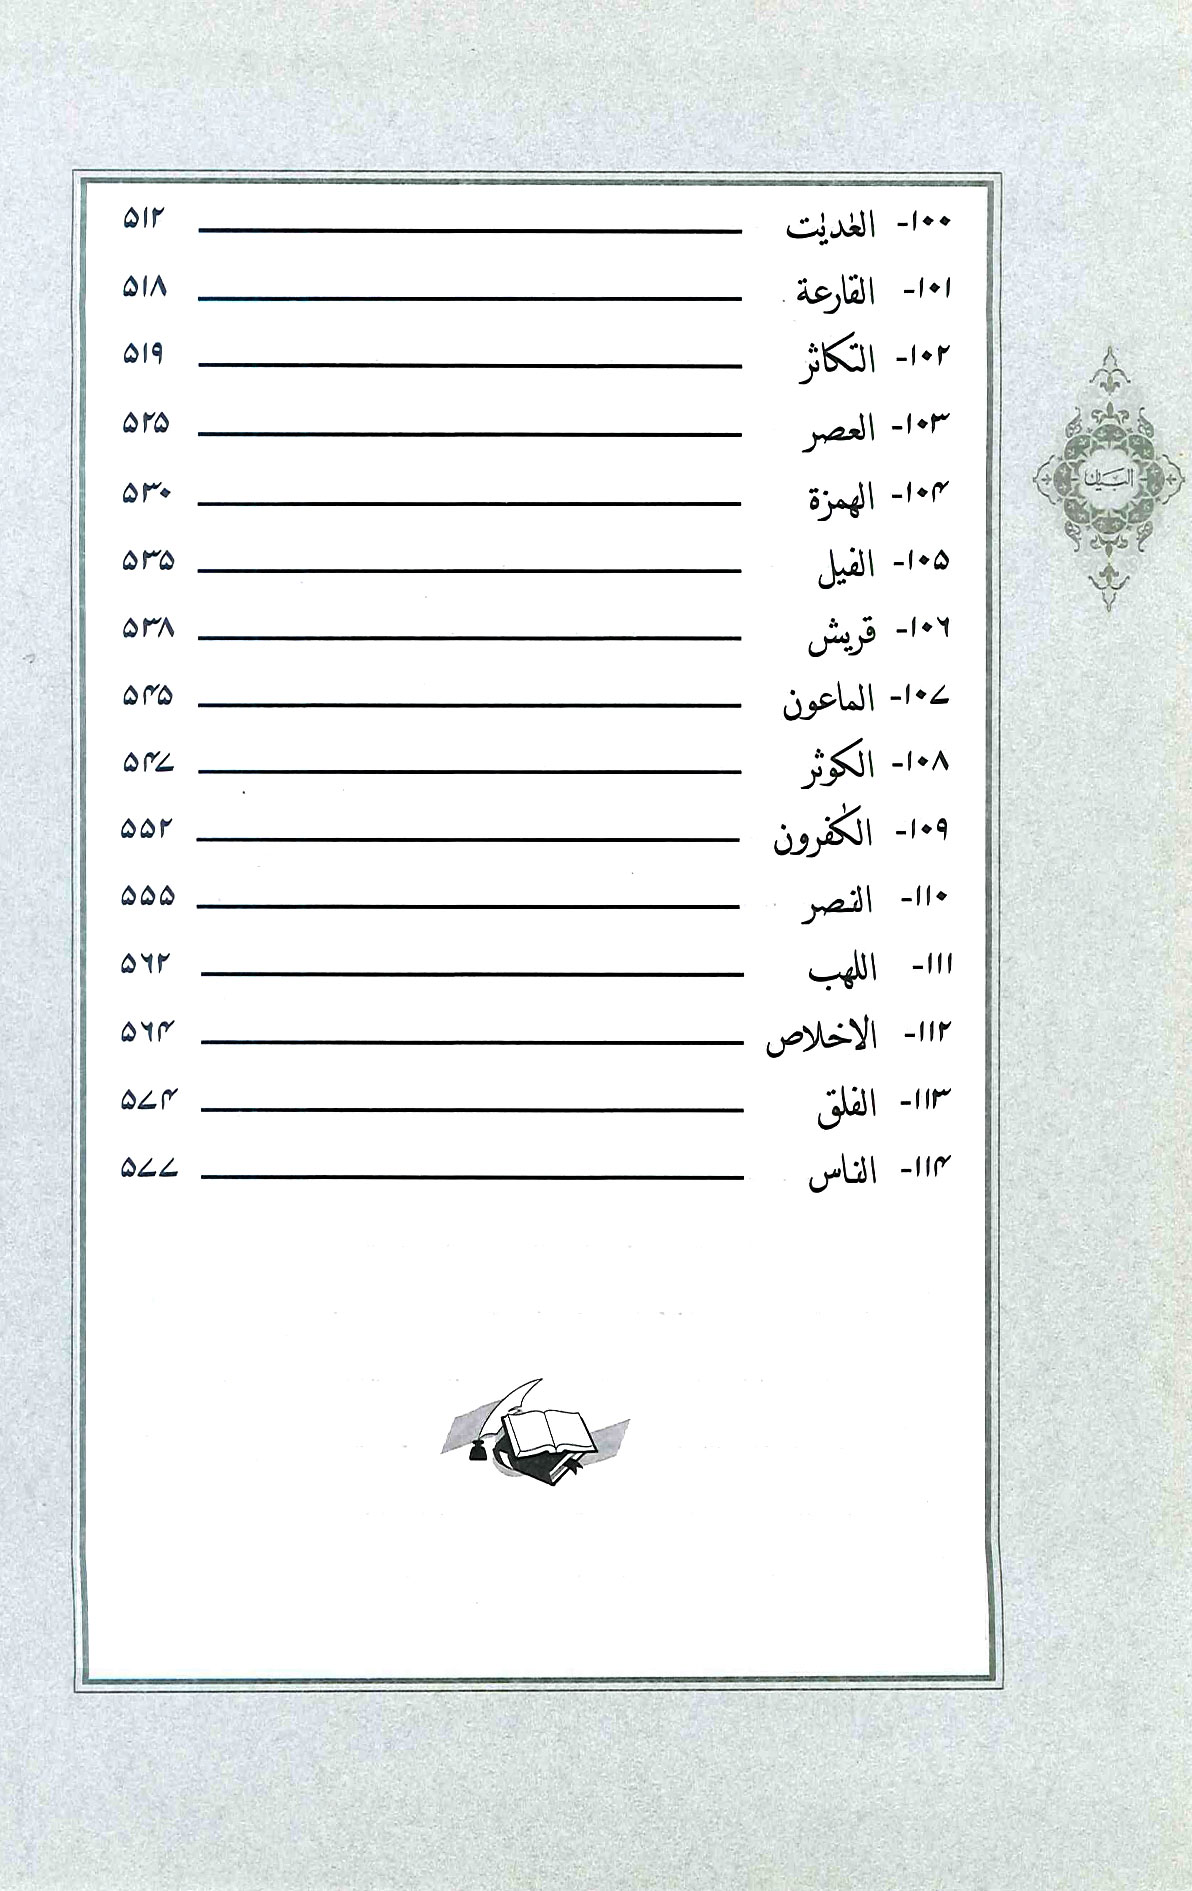 ۱۰۰- العٰدیٰت ۵۱۲
۱۰۱- القارعة ۵۱۸
۱۰۲- التکاثر ۵۱۹
۱۰۳- العصر ۵۲۵
۱۰۴- الهمزة ۵۳۰
۱۰۵- الفیل ۵۳۵
۱۰۶- قریش ۵۳۸
۱۰۷- الماعون ۵۴۵
۱۰۸- الکوثر ۵۴۷
۱۰۹- الکٰفرون ۵۵۲
۱۱۰- النصر ۵۵۵
۱۱۱- اللهب ۵۶۲
۱۱۲- الاخلاص ۵۶۴
۱۱۳- الفلق ۵۷۴
۱۱۴- الناس ۵۷۷
البیان